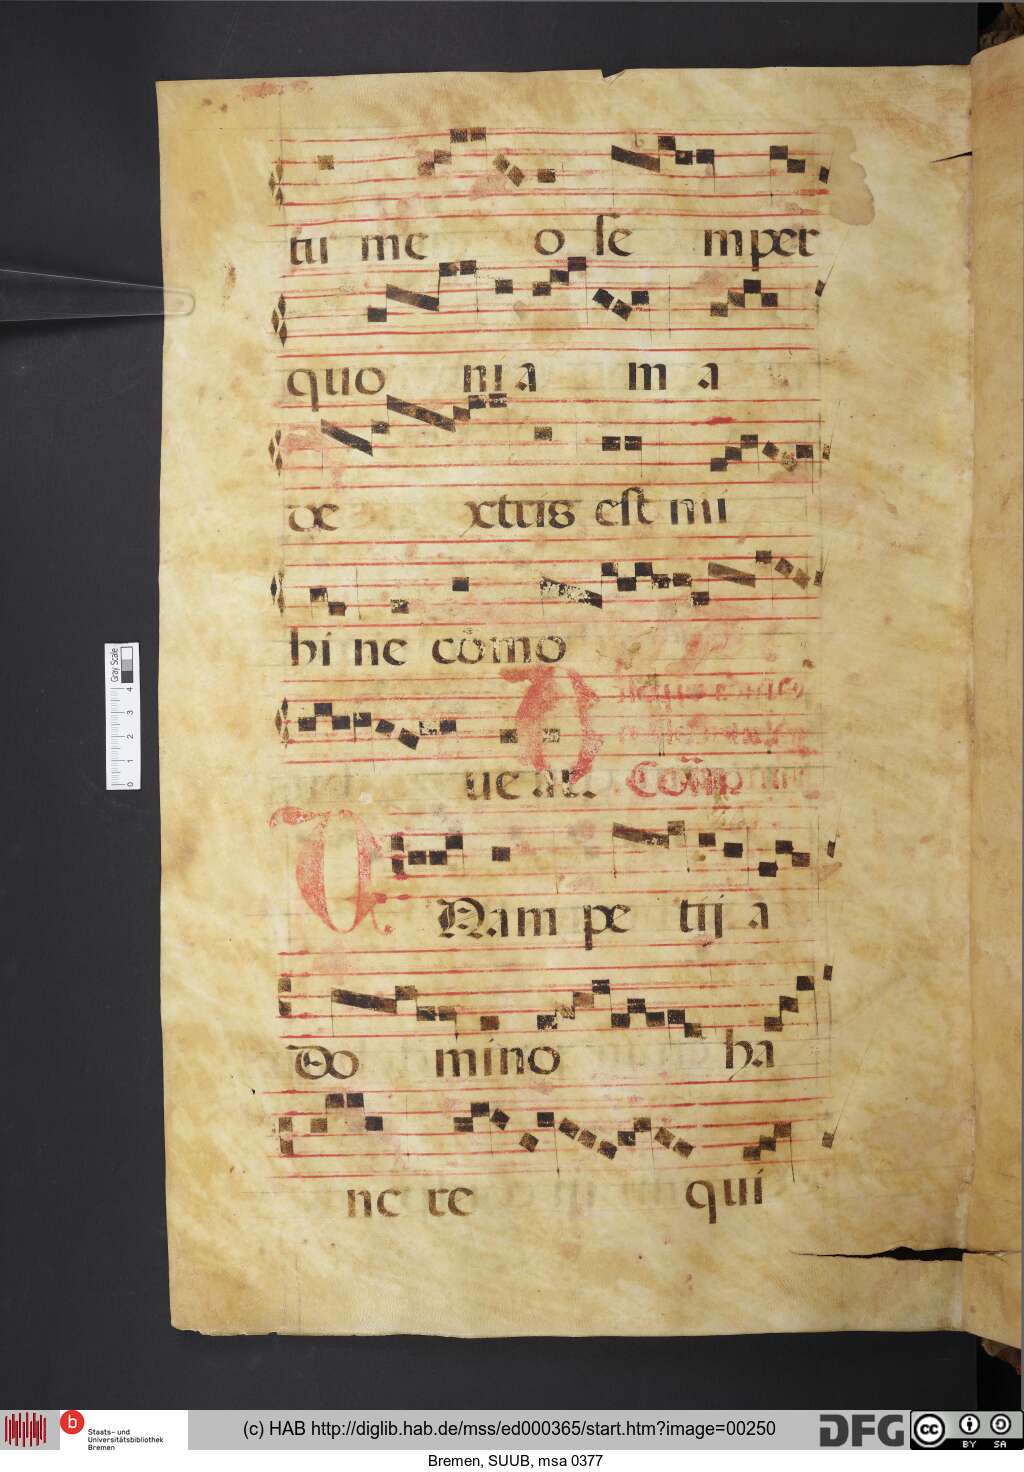 tu me o se mper
quo ni a m a
de xtris est mi
hi ne cōmo
ue ar. Com̄
Unam pe tij a
Do mino ha
ne re qui
Gray Scale
4 3 2 1 0
b Staats- und
Universitätsbibliothek
Bremen
(c) HAB http://diglib.hab.de/mss/ed000365/start.htm?image=00250
DFG
cc BY SA
Bremen, SUUB, msa 0377